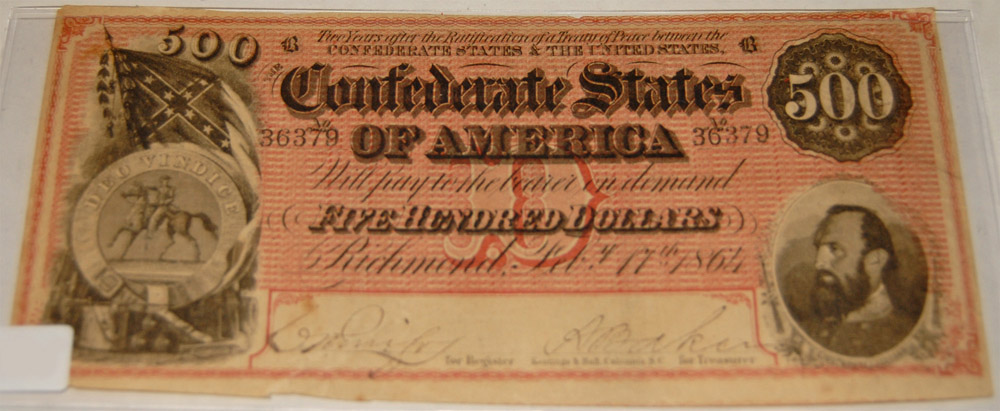 500 B Two Years after the Ratification of a Treaty of Peace between the B
CONFEDERATE STATES & THE UNITED STATES,
THE Confederate States 500
No 36379 OF AMERICA No 36379
DEO VINDICE
Will pay to the bearer on demand
FIVE HUNDRED DOLLARS
Richmond, Feby. 17th 1864
for Register Keatinge & Ball, Columbia, S.C. for Treasurer